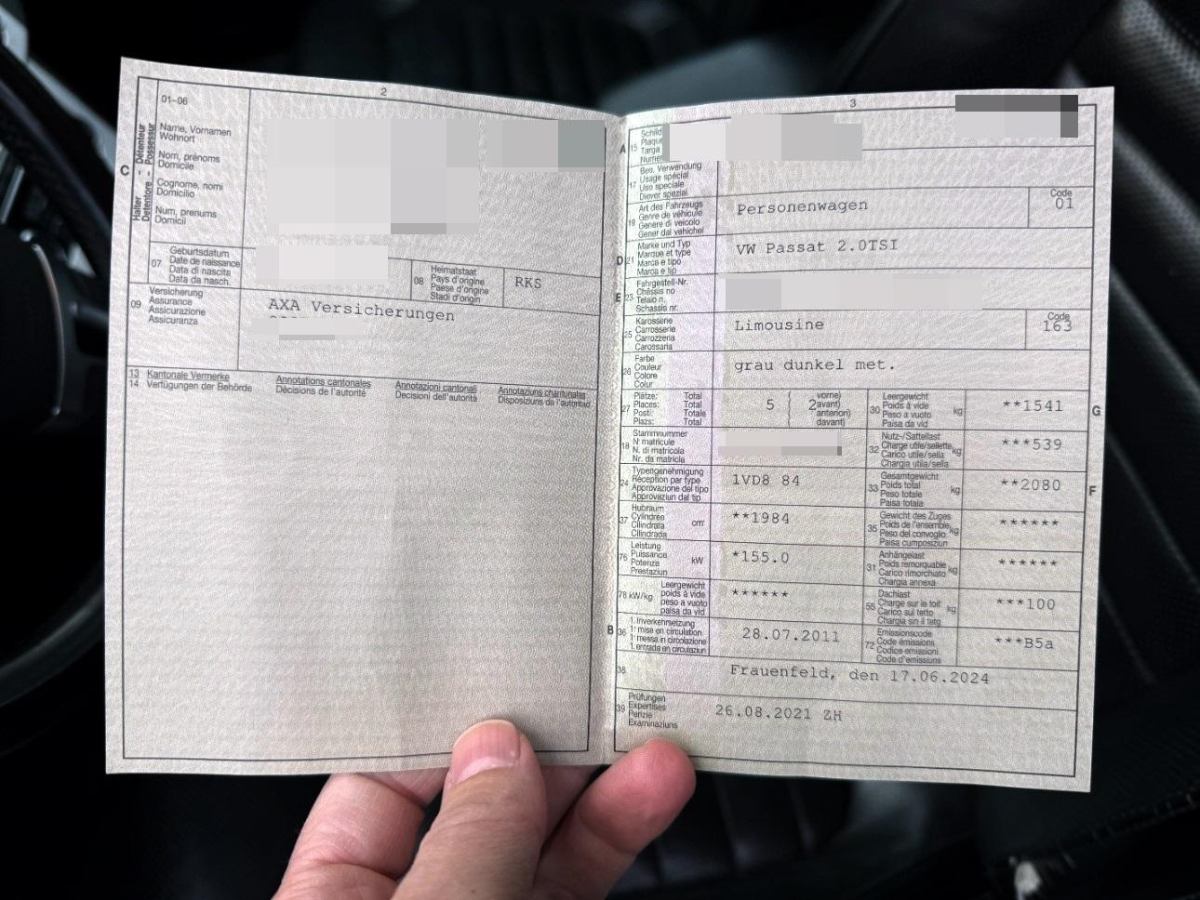 2
01-06
C
Halter - Détenteur
Detentore - Possessur
Name, Vornamen
Wohnort
Nom, prénoms
Domicile
Cognome, nomi
Domicilio
Num, prenums
Domicil
07
Geburtsdatum
Date de naissance
Data di nascita
Data da nasch.
08
Heimatstaat
Pays d'origine
Paese d'origine
Stadi d'origin
RKS
09
Versicherung
Assurance
Assicurazione
Assicuranza
AXA Versicherungen
13 Kantonale Vermerke
14 Verfügungen der Behörde
Annotations cantonales
Décisions de l'autorité
Annotazioni cantonali
Decisioni dell'autorità
Annotaziuns chantunalas
Disposiziuns da l'autoritad
3
A
15
Schild
17
Bes. Verwendung
Usage spécial
Uso speciale
Diever spezial
19
Art des Fahrzeugs
Genre de véhicule
Genere di veicolo
Gener dal vehichel
Personenwagen
Code
01
D
21
Marke und Typ
Marque et type
Marca e tipo
Marca e tip
VW Passat 2.0TSI
E
23
Fahrgestell-Nr.
Châssis no
Telaio n.
Schassis nr.
25
Karosserie
Carrosserie
Carrozzeria
Carossaria
Limousine
Code
163
26
Farbe
Couleur
Colore
Colur
grau dunkel met.
27
Plätze: Total
Places: Total
Posti: Totale
Plazs: Total
5 ( 2
vorne)
avant)
anteriori)
davant)
30
Leergewicht
Poids à vide
Peso a vuoto
Paisa da vid
kg
**1541
G
18
Stammnummer
N° matricule
N. di matricola
Nr. da matricla
32
Nutz-/Sattellast
Charge utile/sellette
Carico utile/sella
Chargia utila/sella
kg
***539
24
Typengenehmigung
Réception par type
Approvazione del tipo
Approvaziun dal tip
1VD8 84
33
Gesamtgewicht
Poids total
Peso totale
Paisa totala
kg
**2080
F
37
Hubraum
Cylindrée
Cilindrata
Cilindrada
cm³
**1984
35
Gewicht des Zuges
Poids de l'ensemble
Peso del convoglio
Paisa cumposiziun
kg
******
76
Leistung
Puissance
Potenza
Prestaziun
kW
*155.0
31
Anhängelast
Poids remorquable
Carico rimorchiato
Chargia annexa
kg
******
78 kW/kg
Leergewicht
poids à vide
peso a vuoto
paisa da vid
******
55
Dachlast
Charge sur le toit
Carico sul tetto
Chargia sin il tetg
kg
***100
B
36
1. Inverkehrsetzung
1re mise en circulation
1a messa in circolazione
1. entrada en circulaziun
28.07.2011
72
Emissionscode
Code émissions
Codice emissioni
Code d'emissiuns
***B5a
38
Frauenfeld, den 17.06.2024
39
Prüfungen
Expertises
Perizie
Examinaziuns
26.08.2021 ZH